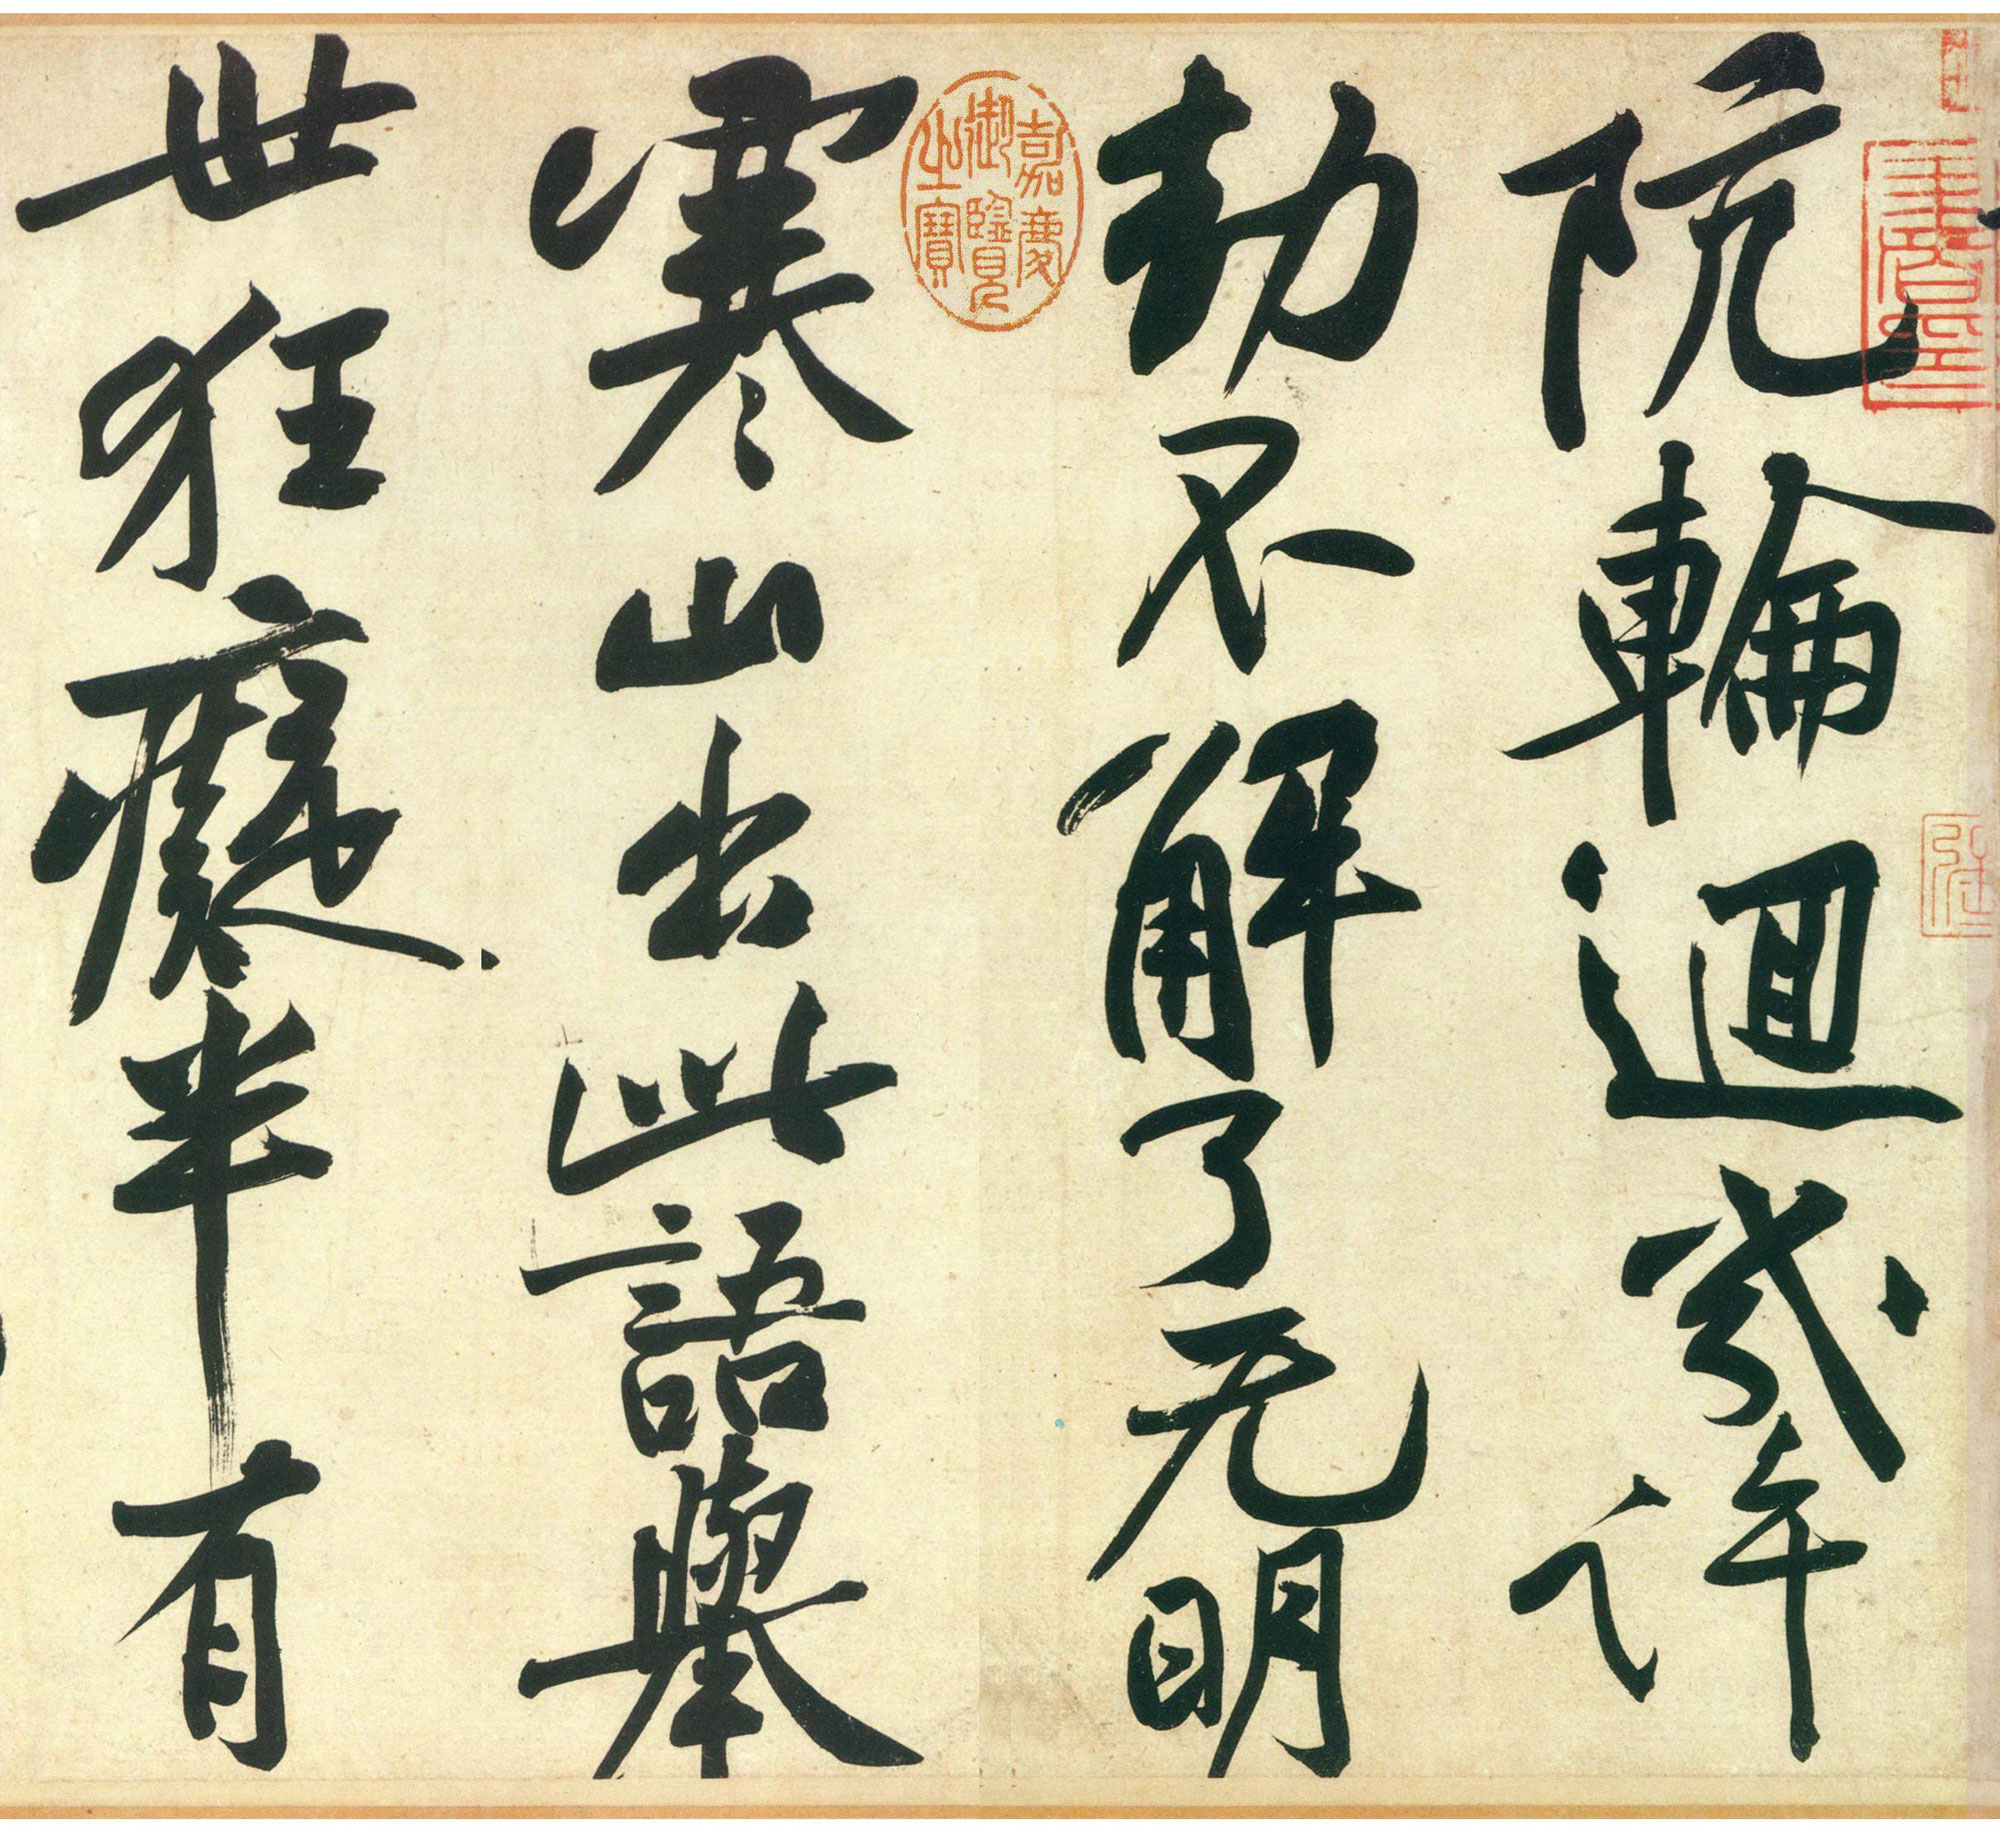 阬輪迴幾許
劫不解了无明
嘉慶
御覽
之寶
寒山出此語舉
世狂癡半有